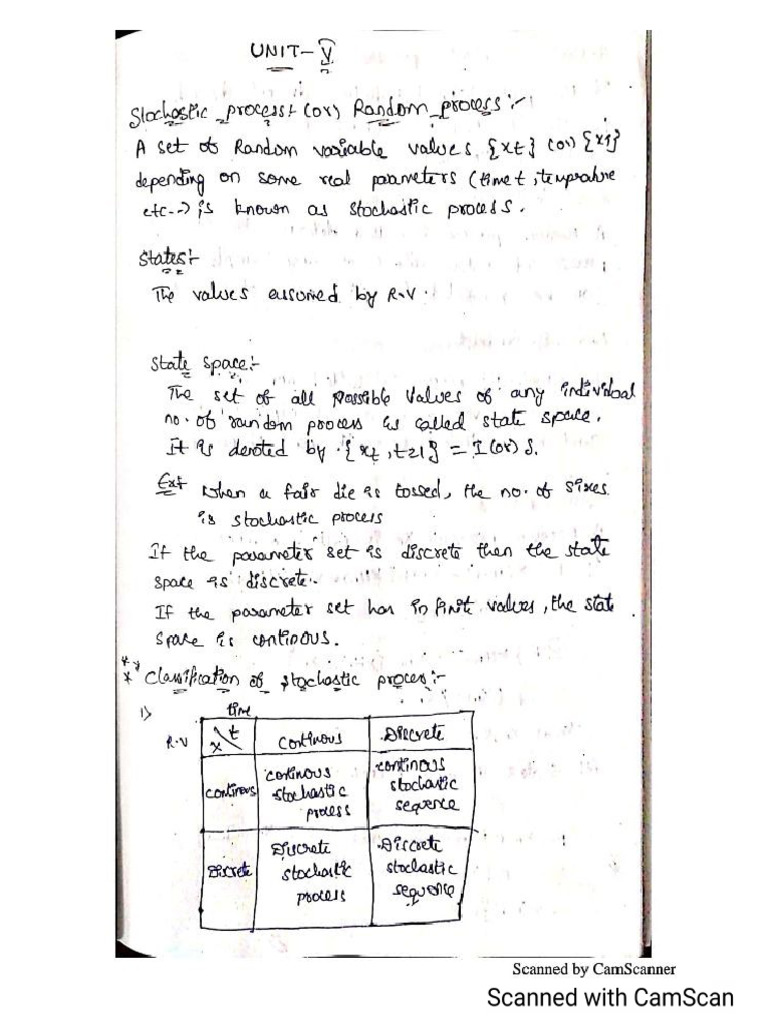 UNIT-V
Stochastic process (or) Random process:-
A set of Random variable values {xt} (or) {x1}
depending on some real parameters (time t, temprature
etc..) is known as stochastic process.
States:-
The values assumed by R.V.
State space:-
The set of all possible values of any individual
no. of random process is called state space.
It is denoted by {xt, t≥1} = I (or) S.
Ex:- When a fair die is tossed, the no. of sixes
is stochastic process
If the parameter set is discrete then the state
space is discrete.
If the parameter set has infinit values, the state
space is continous.
Classification of stochastic process:-
1) time
R.V x t Continous Discrete
continous continous stochastic process continous stochastic sequence
Discrete Discrete stochastic process Discrete stochastic sequence
Scanned by CamScanner
Scanned with CamScan